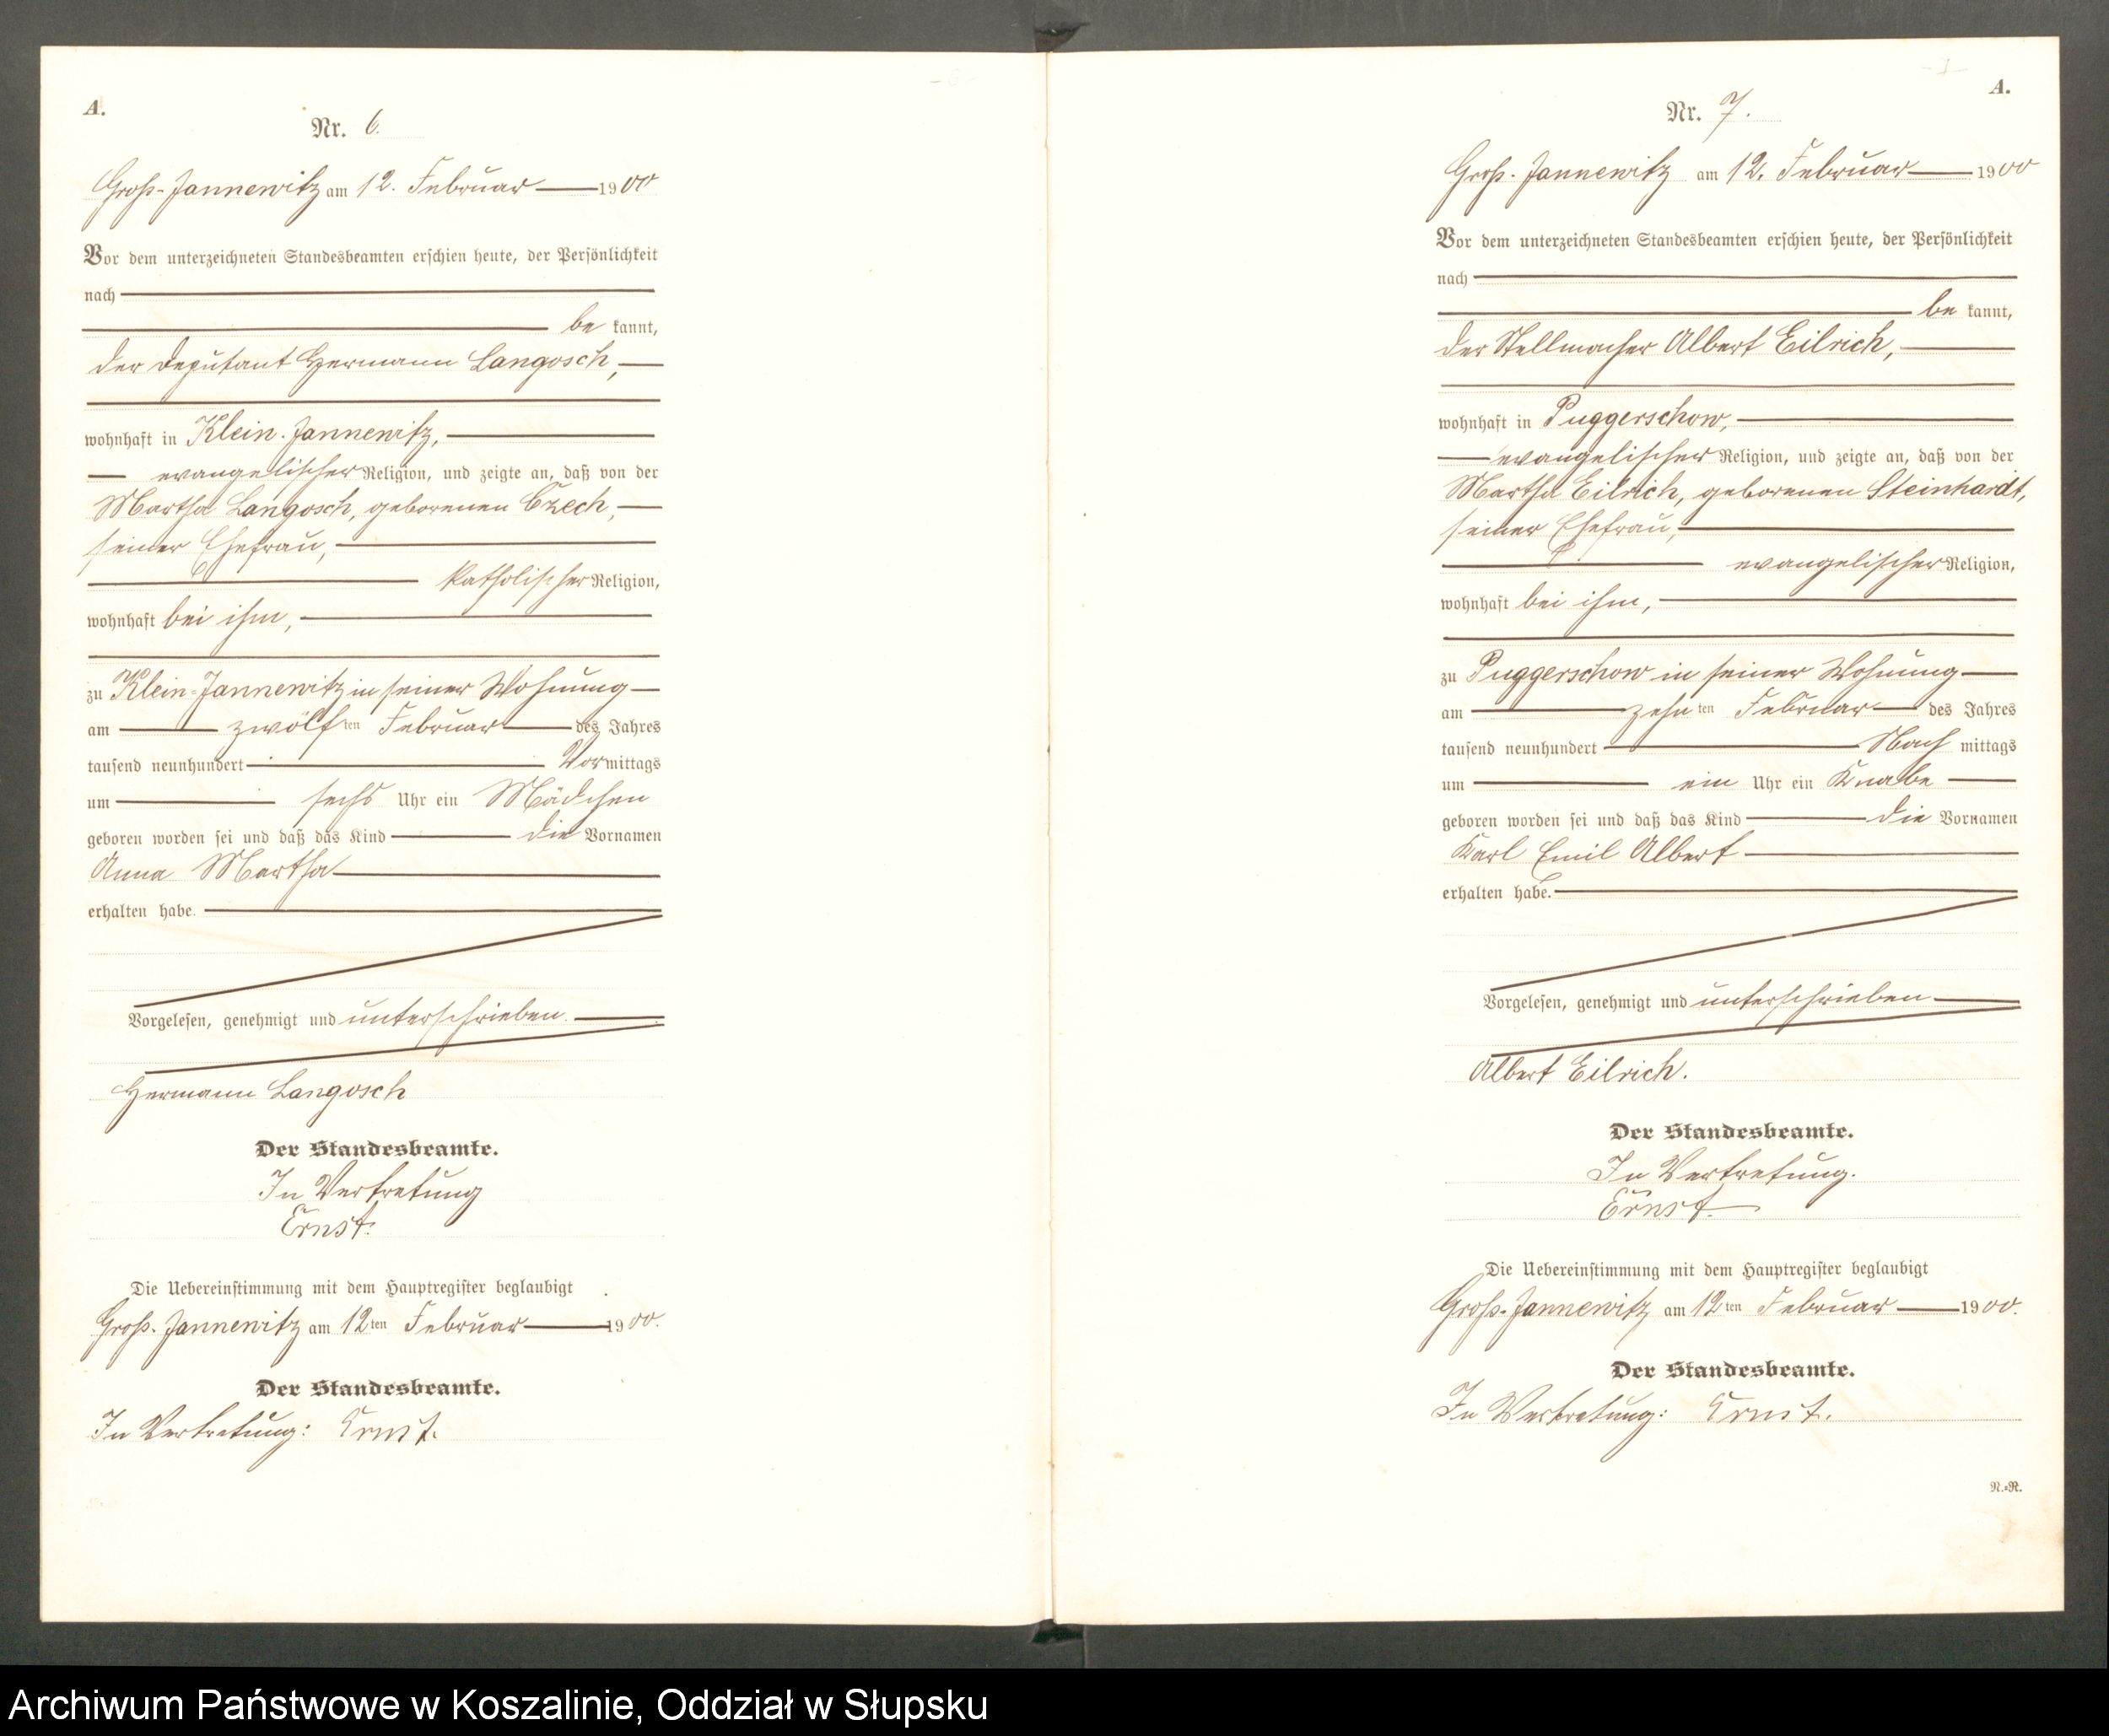 - 6 -
A.
Nr. 6.
Groß-Jannewitz am 12. Februar 1900
Vor dem unterzeichneten Standesbeamten erschien heute, der Persönlichkeit
nach
be kannt,
der Deputant Hermann Langosch,
wohnhaft in Klein-Jannewitz,
evangelischer Religion, und zeigte an, daß von der
Martha Langosch, geborenen Czech,
seiner Ehefrau,
katholischer Religion,
wohnhaft bei ihm,
zu Klein-Jannewitz in seiner Wohnung
am zwölf ten Februar des Jahres
tausend neunhundert Vormittags
um sechs Uhr ein Mädchen
geboren worden sei und daß das Kind die Vornamen
Anna Martha
erhalten habe.
Vorgelesen, genehmigt und unterschrieben.
Hermann Langosch
Der Standesbeamte.
In Vertretung
Ernst.
Die Uebereinstimmung mit dem Hauptregister beglaubigt
Groß-Jannewitz am 12ten Februar 1900.
Der Standesbeamte.
In Vertretung: Ernst.
- 7 -
A.
Nr. 7.
Groß-Jannewitz am 12. Februar 1900
Vor dem unterzeichneten Standesbeamten erschien heute, der Persönlichkeit
nach
be kannt,
der Stellmacher Albert Eilrich,
wohnhaft in Puggerschow,
evangelischer Religion, und zeigte an, daß von der
Martha Eilrich, geborenen Steinhardt,
seiner Ehefrau,
evangelischer Religion,
wohnhaft bei ihm,
zu Puggerschow in seiner Wohnung
am zehn ten Februar des Jahres
tausend neunhundert Nach mittags
um ein Uhr ein Knabe
geboren worden sei und daß das Kind die Vornamen
Karl Emil Albert
erhalten habe.
Vorgelesen, genehmigt und unterschrieben
Albert Eilrich.
Der Standesbeamte.
In Vertretung.
Ernst.
Die Uebereinstimmung mit dem Hauptregister beglaubigt
Groß-Jannewitz am 12ten Februar 1900.
Der Standesbeamte.
In Vertretung: Ernst.
N.=R.
Archiwum Państwowe w Koszalinie, Oddział w Słupsku